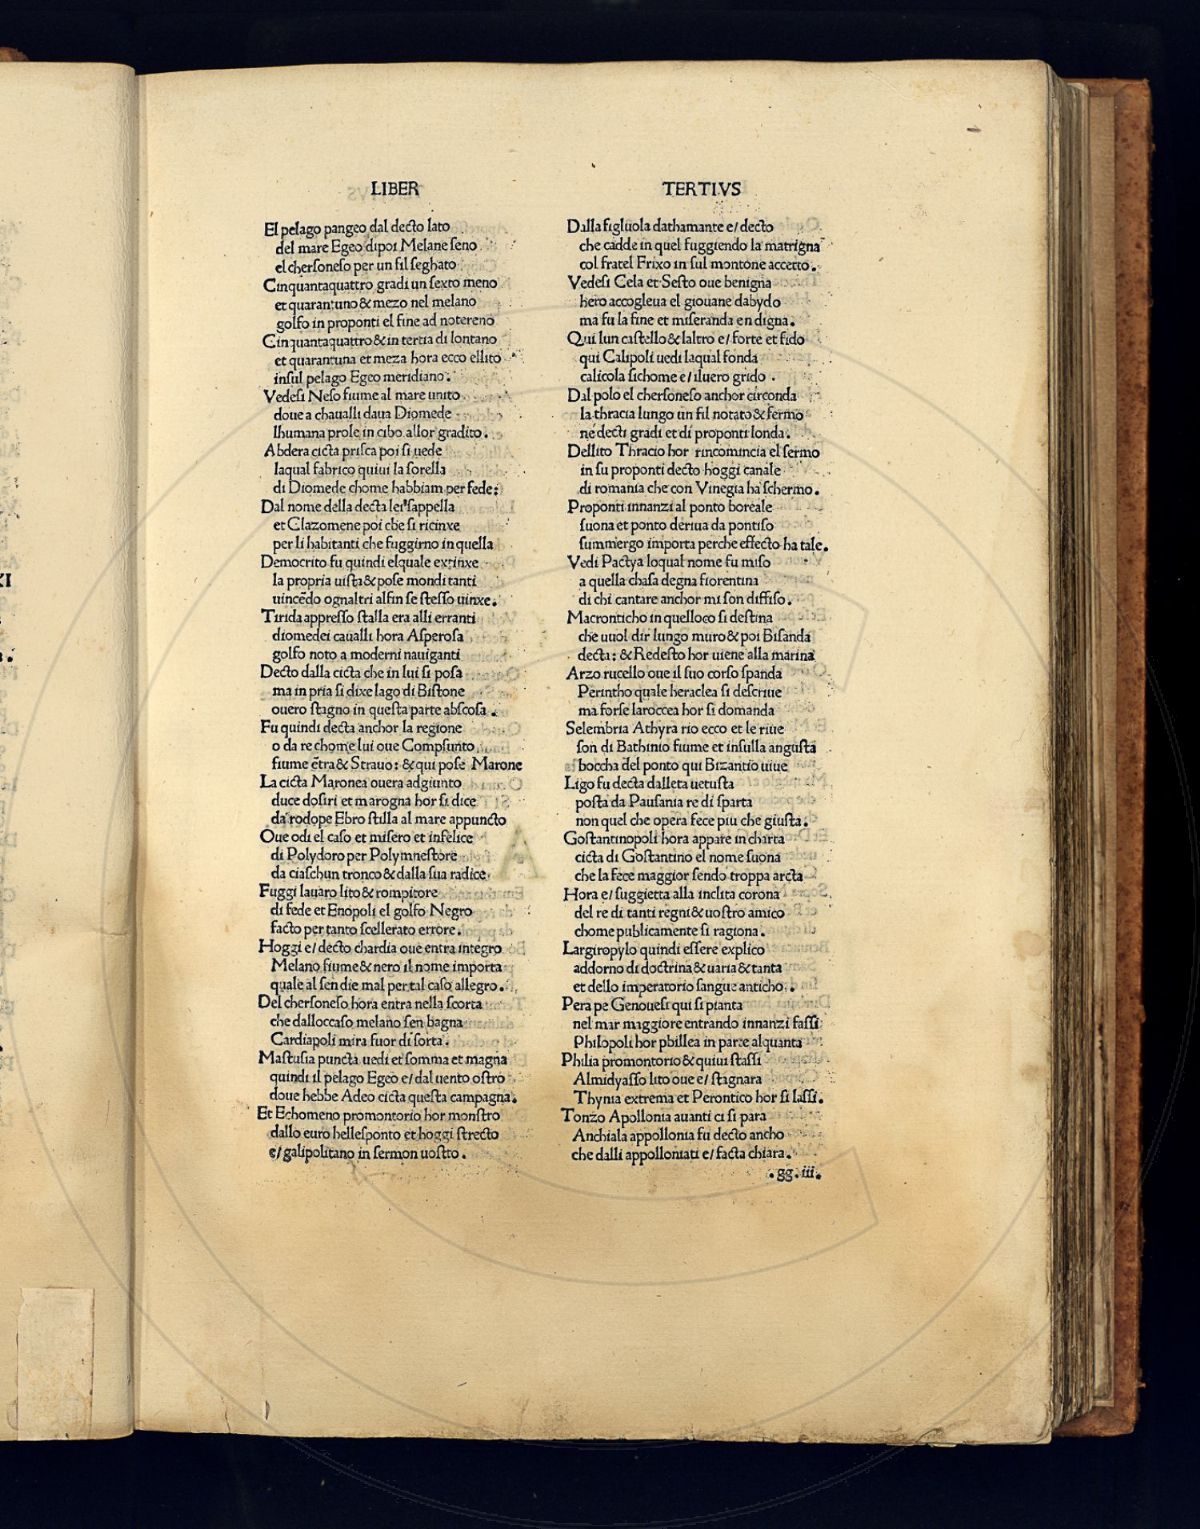 LIBER
El pelago pangeo dal decto lato
del mare Egeo dipoi Melane seno
el chersoneso per un fil seghato
Cinquantaquattro gradi un sexto meno
et quarantuno & mezo nel melano
golfo in proponti el fine ad notereno
Cinquantaquattro & in tertia di lontano
et quarantuna et meza hora ecco ellito
insul pelago Egeo meridiano.
Vedesi Neso fiume al mare unito
doue a chaualli daua Diomede
lhumana prole in cibo allor gradito.
Abdera cicta prisca poi si uede
laqual fabrico quiui la sorella
di Diomede chome habbiam per fede:
Dal nome della decta lei sappella
et Clazomene poi che si ricinxe
per li habitanti che fuggirno in quella
Democrito fu quindi elquale extinxe
la propria uista & pose mondi tanti
uincēdo ognaltri alfin se stesso uinxe.
Tirida appresso stalla era alli erranti
diomedei caualli hora Asperosa
golfo noto a moderni nauiganti
Decto dalla cicta che in lui si posa
ma in pria si dixe lago di Bistone
ouero stagno in questa parte abscosa.
Fu quindi decta anchor la regione
o da re chome lui oue Compsunto
fiume ētra & Strauo: & qui pose Marone
La cicta Maronea ouera adgiunto
duce dosiri et marogna hor si dice
da rodope Ebro stilla al mare appuncto
Oue odi el caso et misero et infelice
di Polydoro per Polymnestore
da ciaschun tronco & dalla sua radice
Fuggi lauaro lito & rompitore
di fede et Enopoli el golfo Negro
facto per tanto scellerato errore.
Hoggi e/ decto chardia oue entra integro
Melano fiume & nero il nome importa
quale al sen die mal per tal caso allegro.
Del chersoneso hora entra nella scorta
che dalloccaso melano sen bagna
Cardiapoli mira fuor di sorta.
Mastusia puncta uedi et somma et magna
quindi il pelago Egeo e/ dal uento ostro
doue hebbe Adeo cicta questa campagna.
Et Echomeno promontorio hor monstro
dallo euro hellesponto et hoggi strecto
e/ galipolitano in sermon uostro.
TERTIVS
Dalla figliuola dathamante e/ decto
che cadde in quel fuggendo la matrigna
col fratel Frixo in sul montone accetto.
Vedesi Cela et Sesto oue benigna
hero accogleua el giouane dabydo
ma fu la fine et miseranda en digna.
Qui lun castello & laltro e/ forte et fido
qui Calipoli uedi laqual fonda
calicola sichome e/ iluero grido.
Dal polo el chersoneso anchor circonda
la thracia lungo un fil notato & fermo
ne decti gradi et di proponti londa.
Dellito Thracio hor rincomincia el sermo
in su proponti decto hoggi canale
di romania che con Vinegia ha schermo.
Proponti innanzi al ponto boreale
suona et ponto deriua da pontiso
summergo importa perche effecto ha tale.
Vedi Pactya loqual nome fu miso
a quella chasa degna fiorentina
di chi cantare anchor mi son diffiso.
Macronticho in quelloco si destina
che uuol dir lungo muro & poi Bisanda
decta: & Redesto hor uiene alla marina
Arzo rucello oue il suo corso spanda
Perintho quale heraclea si descriue
ma forse laroccea hor si domanda
Selembria Athyra rio ecco et le riue
son di Bathinio fiume et insulla angusta
boccha del ponto qui Bizantio uiue
Ligo fu decta dalleta uetusta
posta da Pausania re di sparta
non quel che opera fece piu che giusta.
Gostantinopoli hora appare in charta
cicta di Gostantino el nome suona
che la fece maggior sendo troppa arcta
Hora e/ suggietta alla inclita corona
del re di tanti regni & uostro amico
chome publicamente si ragiona.
Largiropylo quindi essere explico
addorno di doctrina & uaria & tanta
et dello imperatorio sangue anticho.
Pera pe Genouesi qui si pianta
nel mar maggiore entrando innanzi fassi
Philopoli hor phillea in parte alquanta
Philia promontorio & quiui stassi
Almidyasso lito oue e/ stagnara
Thynia extrema et Perontico hor si lassi.
Tonzo Apollonia auanti ci si para
Anchiala appollonia fu decto ancho
che dalli appolloniati e/ facta chiara.
.gg.iii.